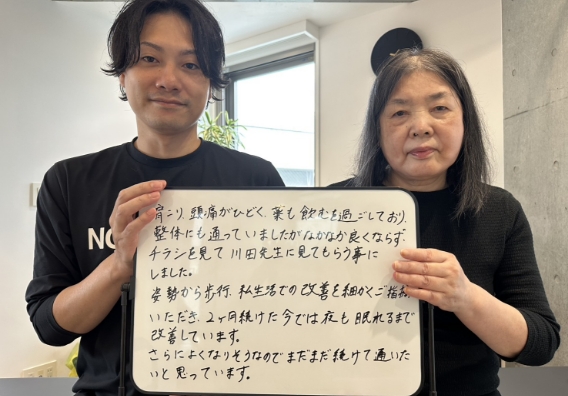 肩こり、頭痛がひどく、薬も飲む過ごしており、
整体にも通っていましたがなかなか良くならず、
チラシを見て川田先生に見てもらう事に
しました。
姿勢から歩行、私生活での改善を細かくご指
いただき、2ヶ月続けた今では夜も眠れるまで
改善しています。
さらによくなりそうなのでまだまだ続けて通いた
いと思っています。
NO